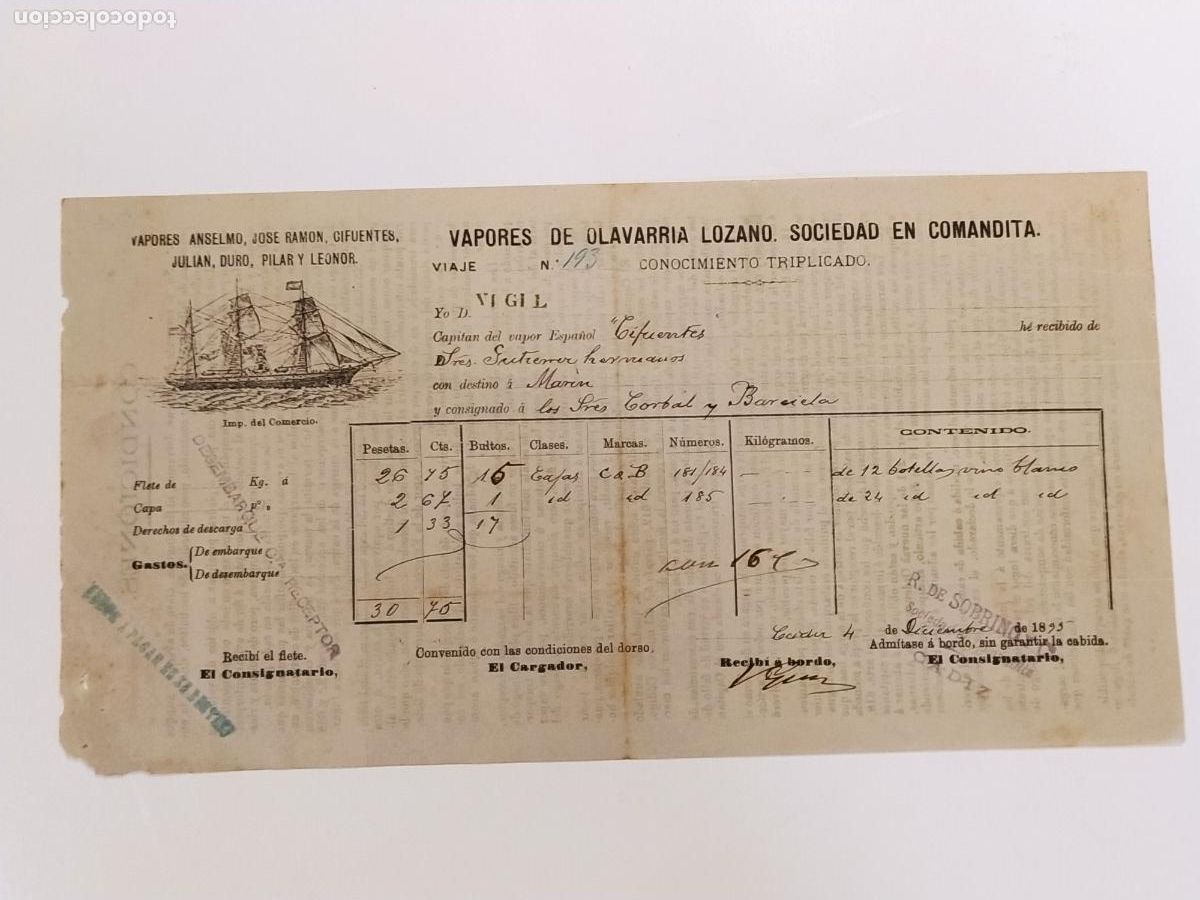 todocoleccion
VAPORES ANSELMO, JOSE RAMON, CIFUENTES,
JULIAN, DURO, PILAR Y LEONOR.
Imp. del Comercio.
VAPORES DE OLAVARRIA LOZANO. SOCIEDAD EN COMANDITA.
VIAJE N.° 193 CONOCIMIENTO TRIPLICADO.
Yo D. VIGIL
Capitan del vapor Español "Cifuentes" hé recibido de
Sres. Gutierrez hermanos
con destino á Marin
y consignado á los Sres Corbal y Barciela
Pesetas. Cts. Bultos. Clases. Marcas. Números. Kilógramos. CONTENIDO.
Flete de Kg. á 26 75 16 Cajas C&B 181/184 de 12 botellas vino blanco
Capa p°. 2 67 1 id id 185 de 24 id id id
Derechos de descarga 1 33 17
Gastos. De embarque
De desembarque
con 16 C
30 75
Cadiz 4 de Diciembre de 1895
Admítase á bordo, sin garantir la cabida.
Recibí el flete. Convenido con las condiciones del dorso.
El Consignatario, El Cargador, Recibí á bordo, El Consignatario,
DESEMBARQUE CTA RECEPTOR
R. DE SOBRINO
CADIZ